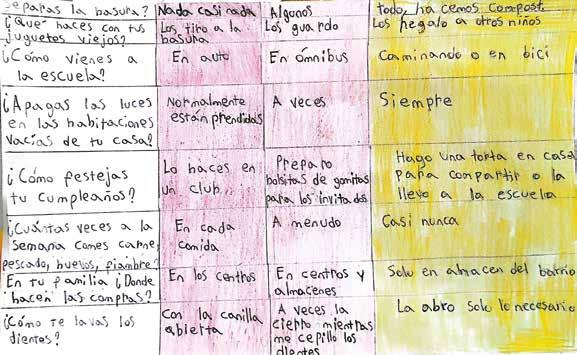 Separas la basura?
Nada casi nada
Algunos
todo, ha cemos compost.
¿Qué haces con tus
juguetes viejos?
Los tiro a la
basura
Los guardo
Los regalo a otros niños
¿Cómo vienes a
la escuela?
En auto
En ómnibus
Caminando o en bici
¿Apagas las luces
en las habitaciones
vacías de tu casa?
Normalmente
están prendidas
A veces
Siempre
¿Cómo festejas
tu cumpleaños?
Lo haces en
un club
Preparo
bolsitas de gomitas
para los invitados
Hago una torta en casa
para compartir o la
llevo a la escuela
¿Cuántas veces a la
semana comes carne,
pescado, huevos, fiambre?
En cada
comida
A menudo
Casi nunca
En tu familia ¿Donde
hacen las compras?
En los centros
En centros y
almacenes
Solo en almacen del barrio
¿Cómo te lavas los
dientes?
Con la canilla
abierta
A veces la
cierro mientras
me cepillo los
dientes
La abro solo lo necesario